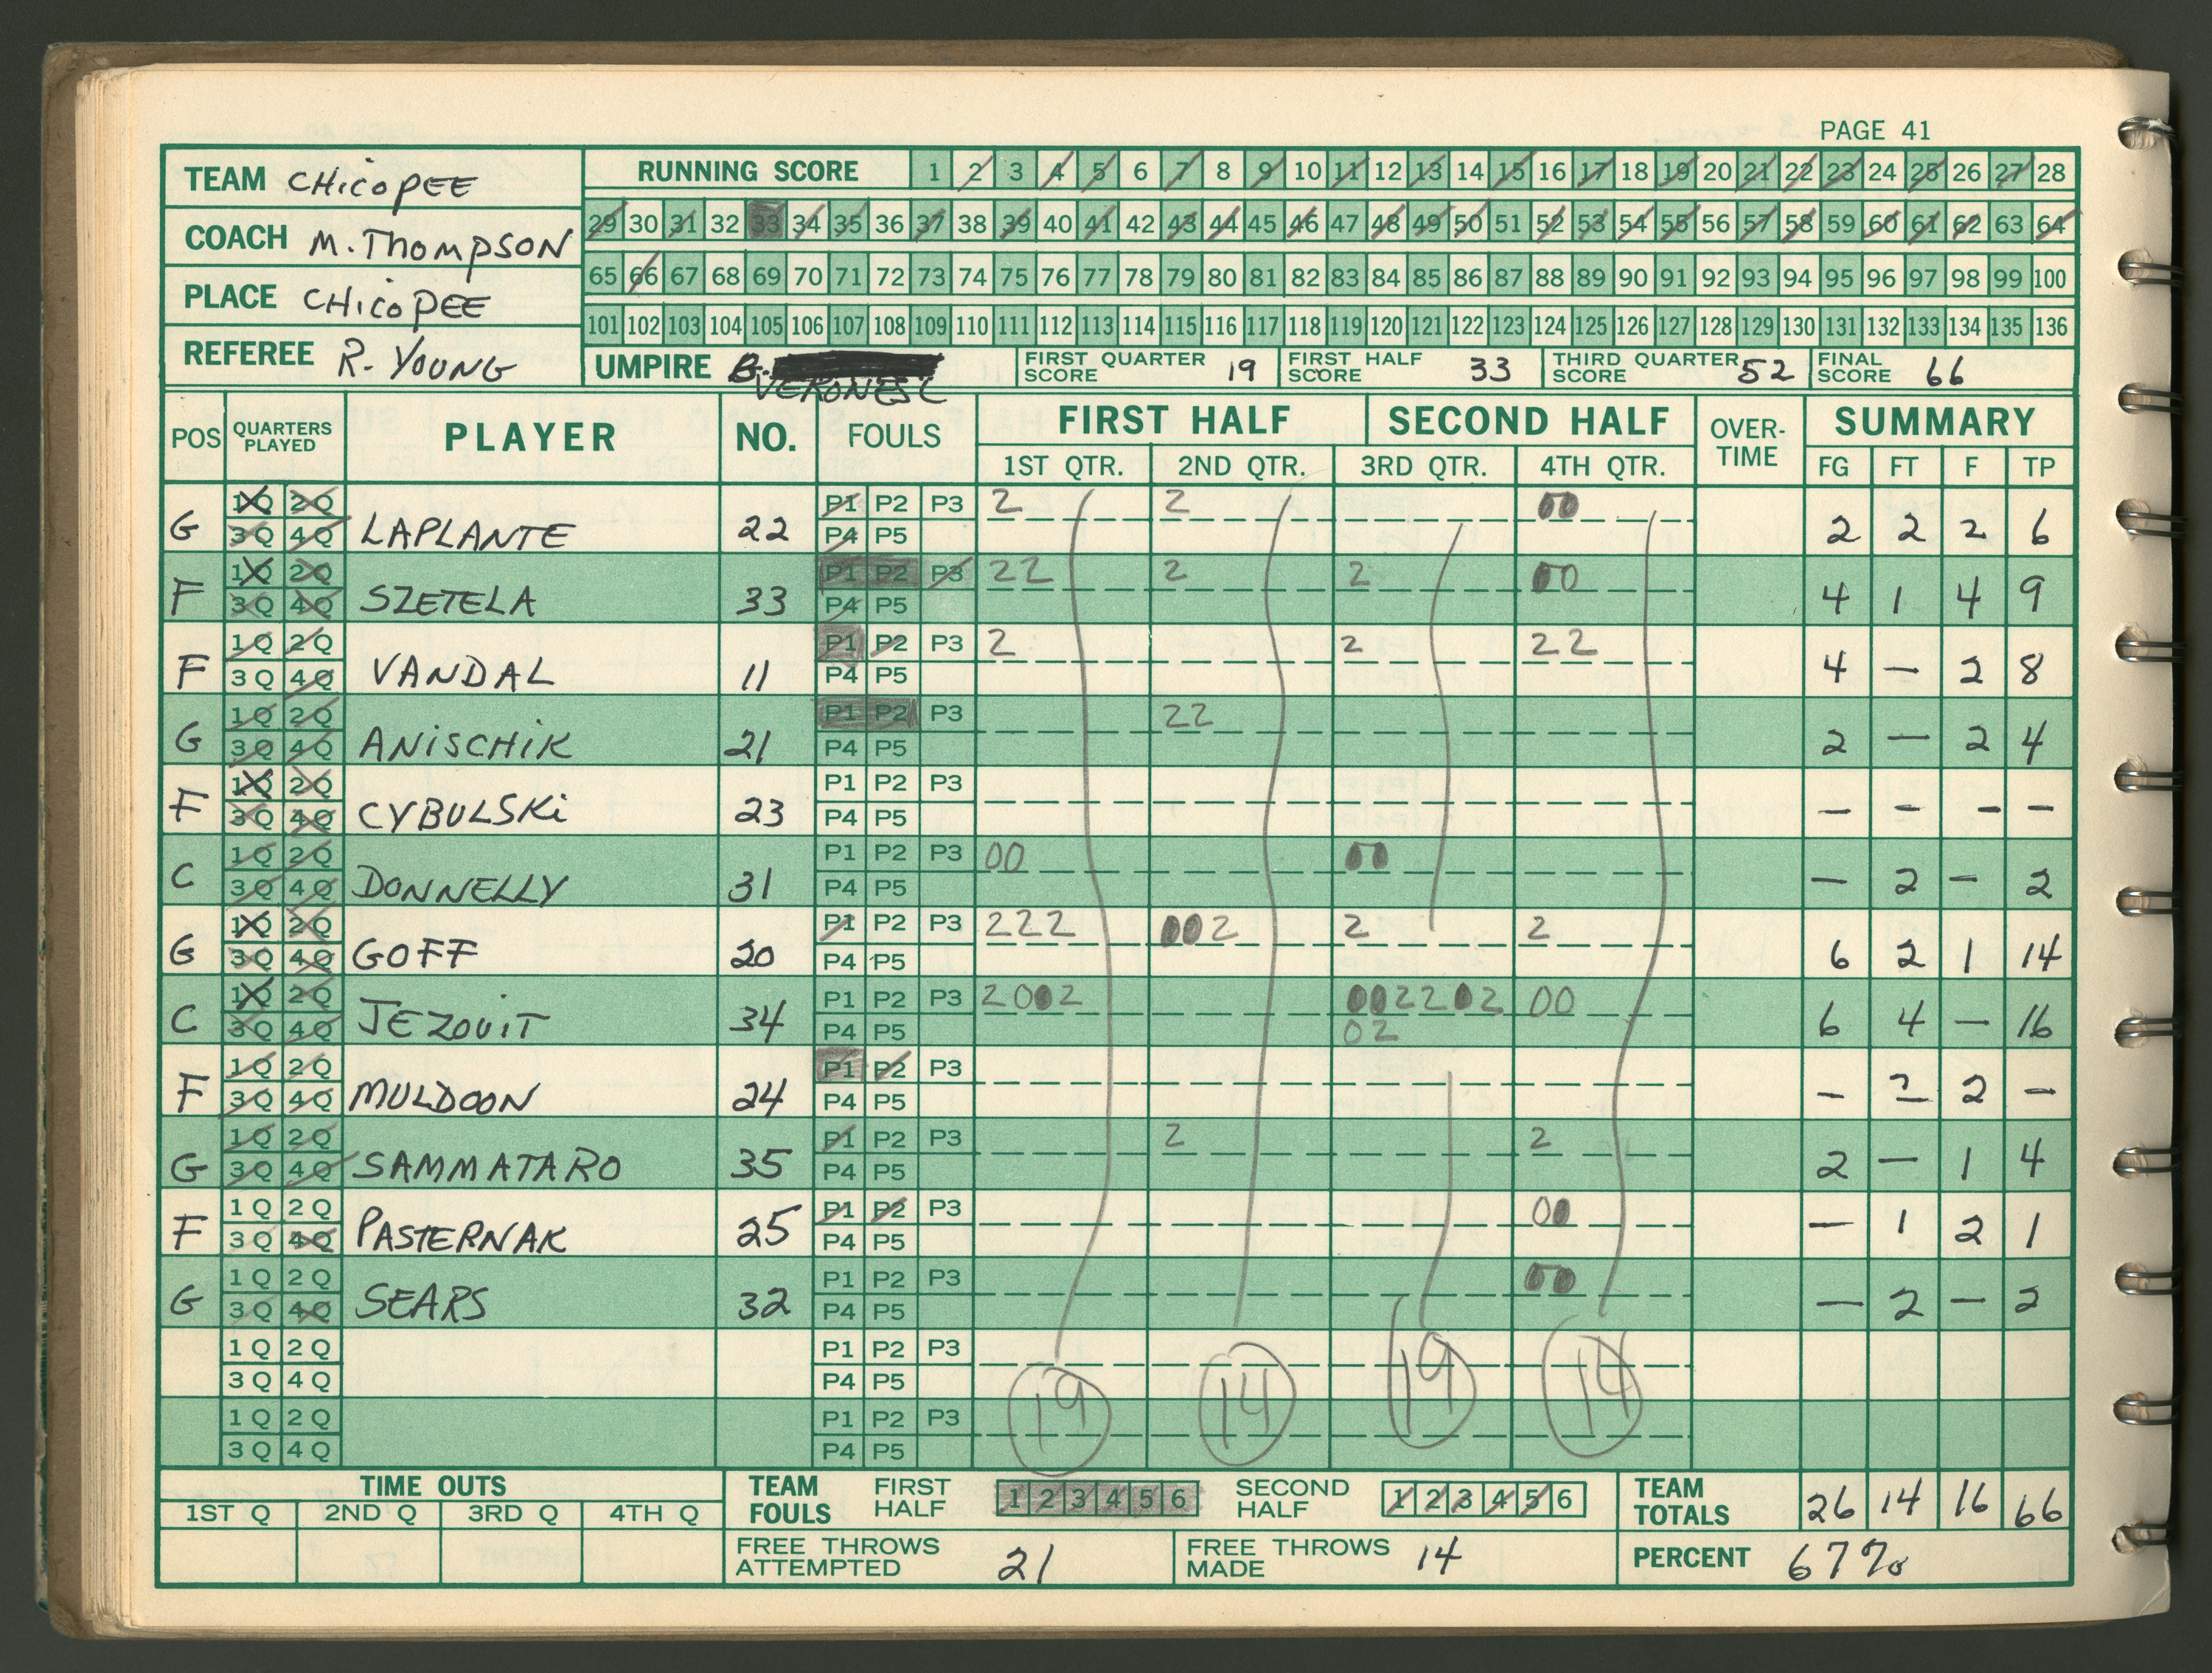 PAGE 41
TEAM CHICOPEE
COACH M. THOMPSON
PLACE CHICOPEE
REFEREE R. YOUNG
RUNNING SCORE 1 2 3 4 5 6 7 8 9 10 11 12 13 14 15 16 17 18 19 20 21 22 23 24 25 26 27 28
29 30 31 32 33 34 35 36 37 38 39 40 41 42 43 44 45 46 47 48 49 50 51 52 53 54 55 56 57 58 59 60 61 62 63 64
65 66 67 68 69 70 71 72 73 74 75 76 77 78 79 80 81 82 83 84 85 86 87 88 89 90 91 92 93 94 95 96 97 98 99 100
101 102 103 104 105 106 107 108 109 110 111 112 113 114 115 116 117 118 119 120 121 122 123 124 125 126 127 128 129 130 131 132 133 134 135 136
UMPIRE B. VERONESI FIRST QUARTER SCORE 19 FIRST HALF SCORE 33 THIRD QUARTER SCORE 52 FINAL SCORE 66
POS QUARTERS PLAYED PLAYER NO. FOULS FIRST HALF SECOND HALF OVER-TIME SUMMARY
1ST QTR. 2ND QTR. 3RD QTR. 4TH QTR. FG FT F TP
G 1Q 2Q 3Q 4Q LAPLANTE 22 P1 P2 P3 P4 P5 2 2 00 2 2 2 6
F 1Q 2Q 3Q 4Q SZETELA 33 P1 P2 P3 P4 P5 22 2 2 00 4 1 4 9
F 1Q 2Q 3Q 4Q VANDAL 11 P1 P2 P3 P4 P5 2 2 22 4 — 2 8
G 1Q 2Q 3Q 4Q ANISCHIK 21 P1 P2 P3 P4 P5 22 2 — 2 4
F 1Q 2Q 3Q 4Q CYBULSKI 23 P1 P2 P3 P4 P5 — — — —
C 1Q 2Q 3Q 4Q DONNELLY 31 P1 P2 P3 P4 P5 00 00 — 2 — 2
G 1Q 2Q 3Q 4Q GOFF 20 P1 P2 P3 P4 P5 222 002 2 2 6 2 1 14
C 1Q 2Q 3Q 4Q JEZOUIT 34 P1 P2 P3 P4 P5 2002 0022202 02 00 6 4 — 16
F 1Q 2Q 3Q 4Q MULDOON 24 P1 P2 P3 P4 P5 — — 2 —
G 1Q 2Q 3Q 4Q SAMMATARO 35 P1 P2 P3 P4 P5 2 2 2 — 1 4
F 1Q 2Q 3Q 4Q PASTERNAK 25 P1 P2 P3 P4 P5 00 — 1 2 1
G 1Q 2Q 3Q 4Q SEARS 32 P1 P2 P3 P4 P5 00 — 2 — 2
1Q 2Q 3Q 4Q P1 P2 P3 P4 P5
1Q 2Q 3Q 4Q P1 P2 P3 P4 P5
19 14 19 14
TIME OUTS
1ST Q 2ND Q 3RD Q 4TH Q
TEAM FOULS FIRST HALF 1 2 3 4 5 6 SECOND HALF 1 2 3 4 5 6 TEAM TOTALS 26 14 16 66
FREE THROWS ATTEMPTED 21 FREE THROWS MADE 14 PERCENT 67%